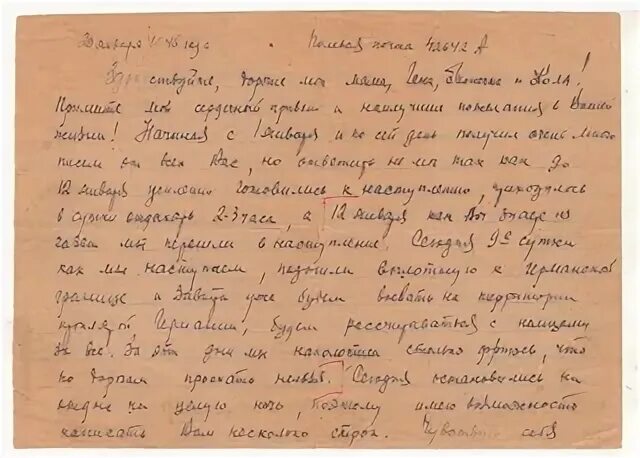 20 января 1945 года Полевая почта 42642 А
Здравствуйте, дорогие мои мама, Гена, и Коля!
Примите мой сердечный привет и наилучшие пожелания в Вашей
жизни! Начиная с 1 января и по сей день получил очень много
писем от всех Вас, но ответить не мог так как до
12 января усиленно готовились к наступлению, приходилось
в сутки отдыхать 2-3 часа, а 12 января как Вы знаете из
газет мы перешли в наступление. Сегодня 9е сутки
как мы наступаем, подошли вплотную к Германской
границе и завтра уже будем воевать на территории
проклятой Германии, будем рассчитываться с немцами
за все. За эти дни мы наколотили столько фрицев, что
по дорогам проехать нельзя. Сегодня остановились на
целую ночь, поэтому имею возможность
написать Вам несколько строк. Чувствую себя